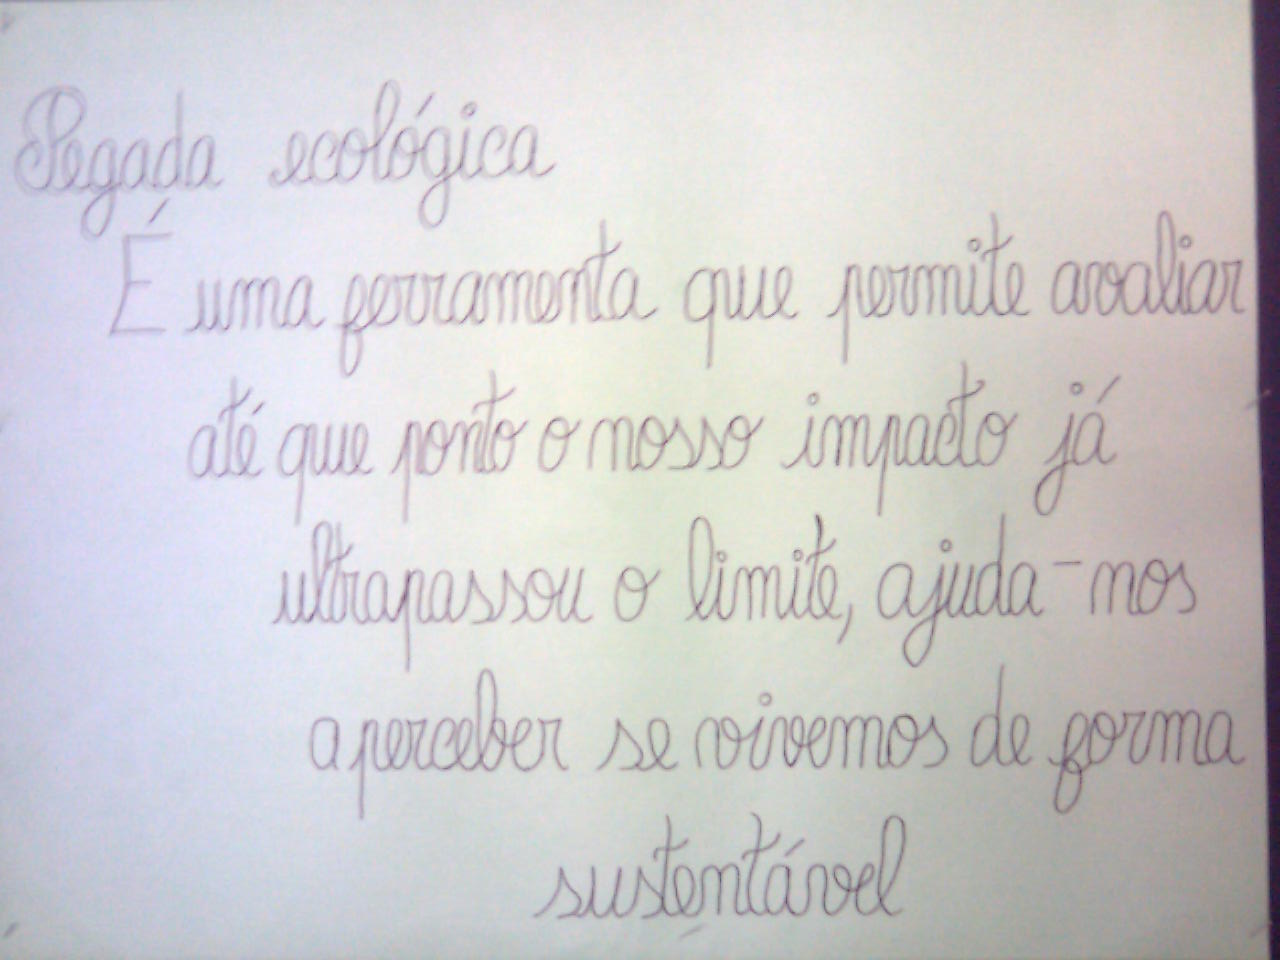 Pegada ecológica
É uma ferramenta que permite avaliar
até que ponto o nosso impacto já
ultrapassou o limite, ajuda-nos
a perceber se vivemos de forma
sustentável